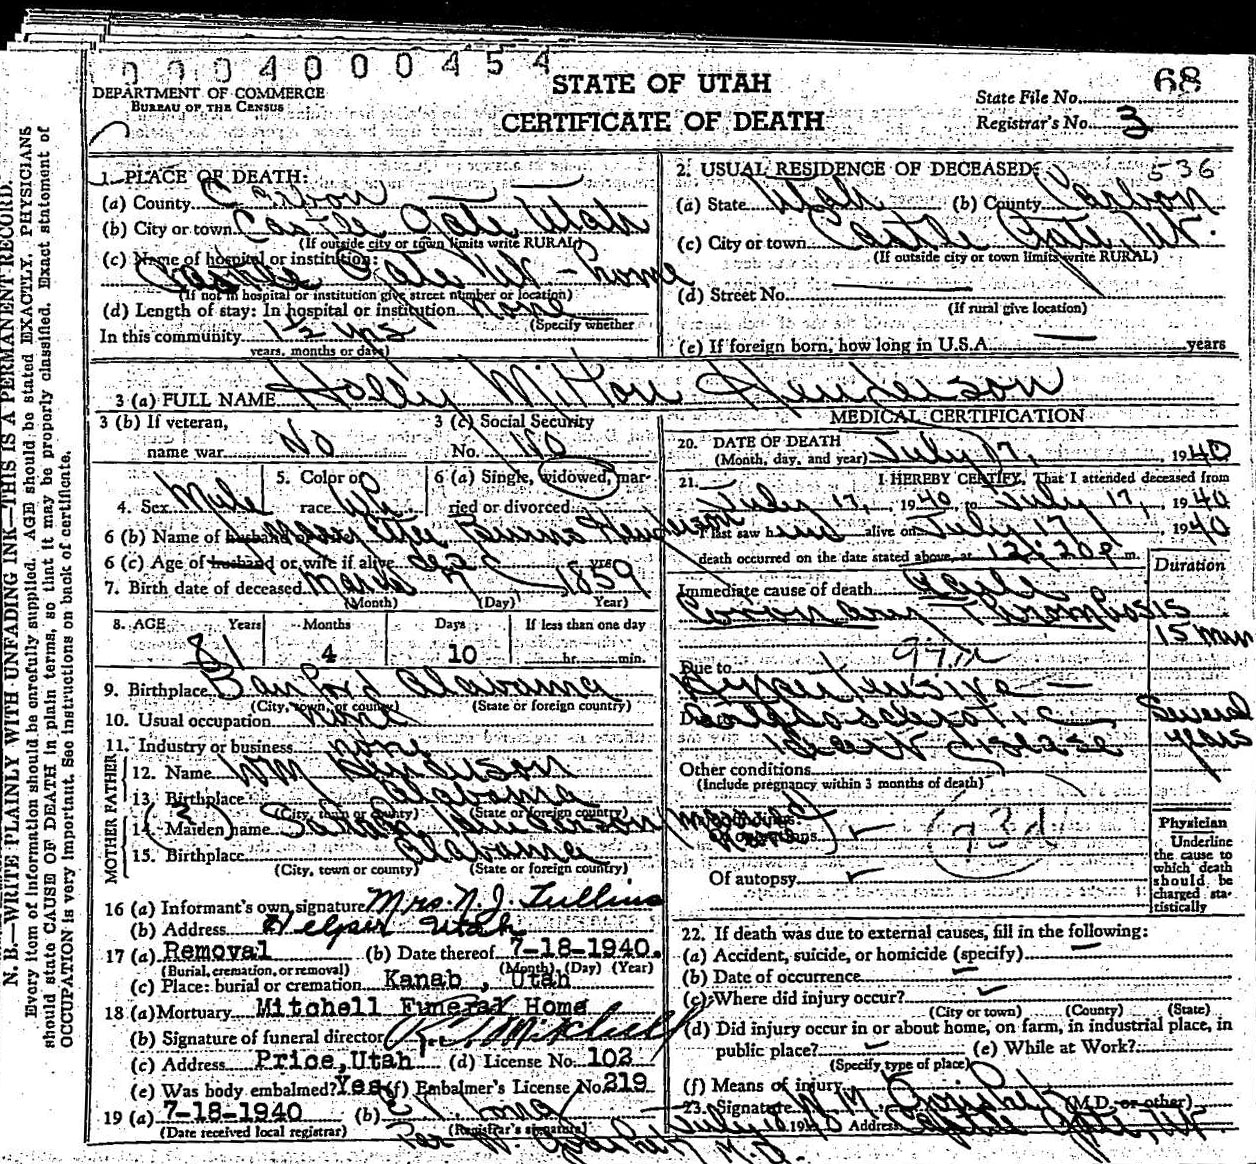 0 0 0 4 0 0 0 4 5 4
DEPARTMENT OF COMMERCE
BUREAU OF THE CENSUS
STATE OF UTAH
CERTIFICATE OF DEATH
State File No. 68
Registrar's No. 3
N. B.—WRITE PLAINLY WITH UNFADING INK—THIS IS A PERMANENT RECORD.
Every item of information should be carefully supplied. AGE should be stated EXACTLY. PHYSICIANS
should state CAUSE OF DEATH in plain terms, so that it may be properly classified. Exact statement of
OCCUPATION is very important. See instructions on back of certificate.
1. PLACE OF DEATH:
(a) County Carbon
(b) City or town Castle Gate Utah
(If outside city or town limits write RURAL)
(c) Name of hospital or institution:
Castle Gate Ut - home
(If not in hospital or institution give street number or location)
(d) Length of stay: In hospital or institution none
(Specify whether
In this community 1 1/2 yrs
years, months or days)
2. USUAL RESIDENCE OF DECEASED: 536
(a) State Utah (b) County Carbon
(c) City or town Castle Gate, Ut.
(If outside city or town limits write RURAL)
(d) Street No.
(If rural give location)
(e) If foreign born, how long in U.S.A. years
3 (a) FULL NAME Holly Milton Henderson
3 (b) If veteran,
name war No
3 (c) Social Security
No. No
4. Sex Male
5. Color of
race W
6 (a) Single, widowed, mar-
ried or divorced
6 (b) Name of husband or wife Burns Henderson
6 (c) Age of husband or wife if alive dec'd yrs
7. Birth date of deceased March 7, 1859
(Month) (Day) Year)
8. AGE Years Months Days If less than one day
81 4 10 hr. min.
9. Birthplace Alabama
(City, town, or county) (State or foreign country)
10. Usual occupation none
11. Industry or business none
FATHER
12. Name Wm Henderson
13. Birthplace Alabama
(City, town or county) (State or foreign country)
MOTHER
14. Maiden name Henderson
15. Birthplace Alabama
(City, town or county) (State or foreign country)
16 (a) Informant's own signature Mrs. N. J. Tullius
(b) Address Helper Utah
17 (a) Removal (b) Date thereof 7-18-1940.
(Burial, cremation, or removal) (Month) (Day) (Year)
(c) Place: burial or cremation Kanab, Utah
18 (a) Mortuary Mitchell Funeral Home
(b) Signature of funeral director Mitchell
(c) Address Price, Utah (d) License No. 102
(e) Was body embalmed? Yes (f) Embalmer's License No. 219
19 (a) 7-18-1940 (b)
(Date received local registrar) (Registrar's signature)
Per M.D.
MEDICAL CERTIFICATION
20. DATE OF DEATH
(Month, day, and year) July 17, 1940
21. I HEREBY CERTIFY, That I attended deceased from
July 17, 1940, to July 17, 1940
I last saw him alive on July 17, 1940
death occurred on the date stated above, at 12:20 P m.
Duration
Immediate cause of death
Coronary Thrombosis
15 min
Due to
Hypertensive —
heart disease
Several years
Other conditions
(Include pregnancy within 3 months of death)
Of operations
93d
Of autopsy
Physician
Underline
the cause to
which death
should be
charged sta-
tistically
22. If death was due to external causes, fill in the following:
(a) Accident, suicide, or homicide (specify)
(b) Date of occurrence
(c) Where did injury occur?
(City or town) (County) (State)
(d) Did injury occur in or about home, on farm, in industrial place, in
public place? (e) While at Work?
(Specify type of place)
(f) Means of injury
23. Signature W. M. Gorishek (M.D. or other)
July 18 1940 Address Castle Gate, Ut.